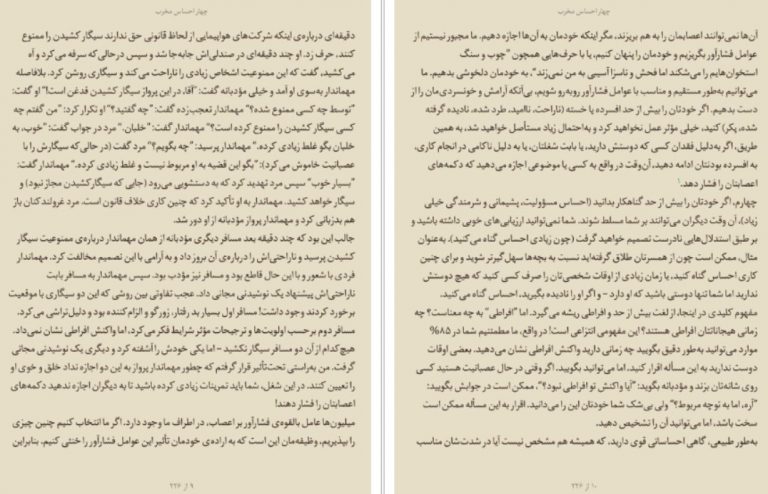 چهار احساس مخرب
دقیقه‌ای درباره‌ی اینکه شرکت‌های هواپیمایی از لحاظ قانونی حق ندارند سیگار کشیدن را ممنوع
کنند، حرف زد. او چند دقیقه‌ای در صندلی‌اش جابه‌جا شد و سپس درحالی‌که سرفه می‌کرد و آه
می‌کشید، گفت که این ممنوعیت اشخاص زیادی را ناراحت می‌کند و سیگاری روشن کرد. بلافاصله
مهماندار به‌سوی او آمد و خیلی مؤدبانه گفت: "آقا، در این پرواز سیگار کشیدن قدغن است!" او گفت:
"توسط چه کسی ممنوع شده؟" مهماندار تعجب‌زده گفت: "چه گفتید؟" او تکرار کرد: "من گفتم چه
کسی سیگار کشیدن را ممنوع کرده است؟" مهماندار گفت: "خلبان." مرد در جواب گفت: "خوب، به
خلبان بگو غلط زیادی کرده." مهماندار پرسید: "چه بگویم؟" مرد (در حالی که سیگارش را با
عصبانیت خاموش می‌کرد): "بگو این قضیه به او مربوط نیست و غلط زیادی کرده." مهماندار گفت:
"بسیار خوب" سپس مرد تهدید کرد که به دستشویی می‌رود (جایی که سیگار کشیدن مجاز نبود) و
سیگار خواهد کشید. مهماندار به او تأکید کرد که چنین کاری خلاف قانون است. مرد غرولندکنان باز
هم بدزبانی کرد و مهماندار پرواز مؤدبانه از او دور شد.
جالب این بود که چند دقیقه بعد مسافر دیگری مؤدبانه از همان مهماندار درباره‌ی ممنوعیت سیگار
کشیدن پرسید و ناراحتی‌اش را درباره‌ی آن بروز داد و به آرامی با این تصمیم مخالفت کرد. مهماندار
فردی با شعور و با این حال قاطع بود و مسافر نیز مؤدب بود. سپس مهماندار به مسافر بابت
ناراحتی‌اش پیشنهاد یک نوشیدنی مجانی داد. عجب تفاوتی بین روشی که این دو سیگاری با موقعیت
برخورد کردند وجود داشت! مسافر اول بسیار بد رفتار، زورگو و الزام‌کننده بود و دلیل‌تراشی می‌کرد.
مسافر دوم برحسب اولویت‌ها و ترجیحات مؤثر شرایط فکر می‌کرد، اما واکنش افراطی نشان نمی‌داد.
هیچ‌کدام از آن دو مسافر سیگار نکشید – اما یکی خودش را آشفته کرد و دیگری یک نوشیدنی مجانی
گرفت. من به‌راستی تحت‌تأثیر قرار گرفتم که چطور مهماندار پرواز به این دو اجازه نداد خلق و خوی او
را تعیین کنند. در این شغل، شما باید تمرینات زیادی کرده باشید تا به دیگران اجازه ندهید دکمه‌های
اعصابتان را فشار دهند!
میلیون‌ها عامل بالقوه‌ی فشارآور بر اعصاب، در اطراف ما وجود دارد. اگر ما انتخاب کنیم چنین چیزی
را بپذیریم، وظیفه‌مان این است که به اراده‌ی خودمان تأثیر این عوامل فشارآور را خنثی کنیم. بنابراین
۹ از ۲۲۶
چهار احساس مخرب
آن‌ها نمی‌توانند اعصابمان را به هم بریزند، مگر اینکه خودمان به آن‌ها اجازه دهیم. ما مجبور نیستیم از
عوامل فشارآور بگریزیم و خودمان را پنهان کنیم، یا با حرف‌هایی همچون "چوب و سنگ
استخوان‌هایم را می‌شکند اما فحش و ناسزا آسیبی به من نمی‌زند"، به خودمان دلخوشی بدهیم. ما
می‌توانیم به‌طور مستقیم و مناسب با عوامل فشارآور روبه‌رو شویم، بی‌آنکه آرامش و خونسردی‌مان را از
دست بدهیم. اگر خودتان را بیش از حد افسرده یا خسته (ناراحت، ناامید، طرد شده، نادیده گرفته
شده، پکر) کنید، خیلی مؤثر عمل نخواهید کرد و به‌احتمال زیاد مستأصل خواهید شد، به همین
طریق، اگر به‌دلیل فقدان کسی که دوستش دارید، یا بابت شغلتان، یا به دلیل ناکامی در انجام کاری،
به افسرده بودنتان ادامه دهید، آن‌وقت در واقع به کسی یا موضوعی اجازه می‌دهید که دکمه‌های
اعصابتان را فشار دهد.۱
چهارم، اگر خودتان را بیش از حد گناهکار بدانید (احساس مسؤولیت، پشیمانی و شرمندگی خیلی
زیاد)، آن وقت دیگران می‌توانند بر شما مسلط شوند. شما نمی‌توانید ارزیابی‌های خوبی داشته باشید و
بر طبق استدلال‌هایی نادرست تصمیم خواهید گرفت (چون زیادی احساس گناه می‌کنید). به‌عنوان
مثال، ممکن است چون از همسرتان طلاق گرفته‌اید نسبت به بچه‌ها سهل‌گیرتر شوید و برای چنین
کاری احساس گناه کنید، یا زمان زیادی از اوقات شخصی‌تان را صرف کسی کنید که هیچ دوستش
ندارید اما شما تنها دوستی باشید که او دارد – و اگر او را نادیده بگیرید، احساس گناه می‌کنید.
مفهوم کلیدی در اینجا، از لغت بیش از حد و افراطی ریشه می‌گیرد. اما "افراطی" به چه معناست؟ چه
زمانی هیجاناتتان افراطی هستند؟ این مفهومی انتزاعی است! در واقع، ما مطمئنیم شما در ۸۵%
موارد می‌توانید به‌طور دقیق بگویید چه زمانی دارید واکنش افراطی نشان می‌دهید. بعضی اوقات
دوست ندارید به این مسأله اقرار کنید، اما می‌توانید بگویید. اگر وقتی در حال عصبانیت هستید کسی
روی شانه‌تان بزند و مؤدبانه بگوید: "آیا واکنش تو افراطی نبود؟"، ممکن است در جوابش بگویید:
"آره، اما به تو چه مربوط؟" ولی بی‌شک شما خودتان این را می‌دانید. اقرار به این مسأله ممکن است
سخت باشد، اما می‌توانید آن را تشخیص دهید.
به‌طور طبیعی، گاهی احساساتی قوی دارید، که همیشه هم مشخص نیست آیا در شدت‌شان مناسب
۱۰ از ۲۲۶